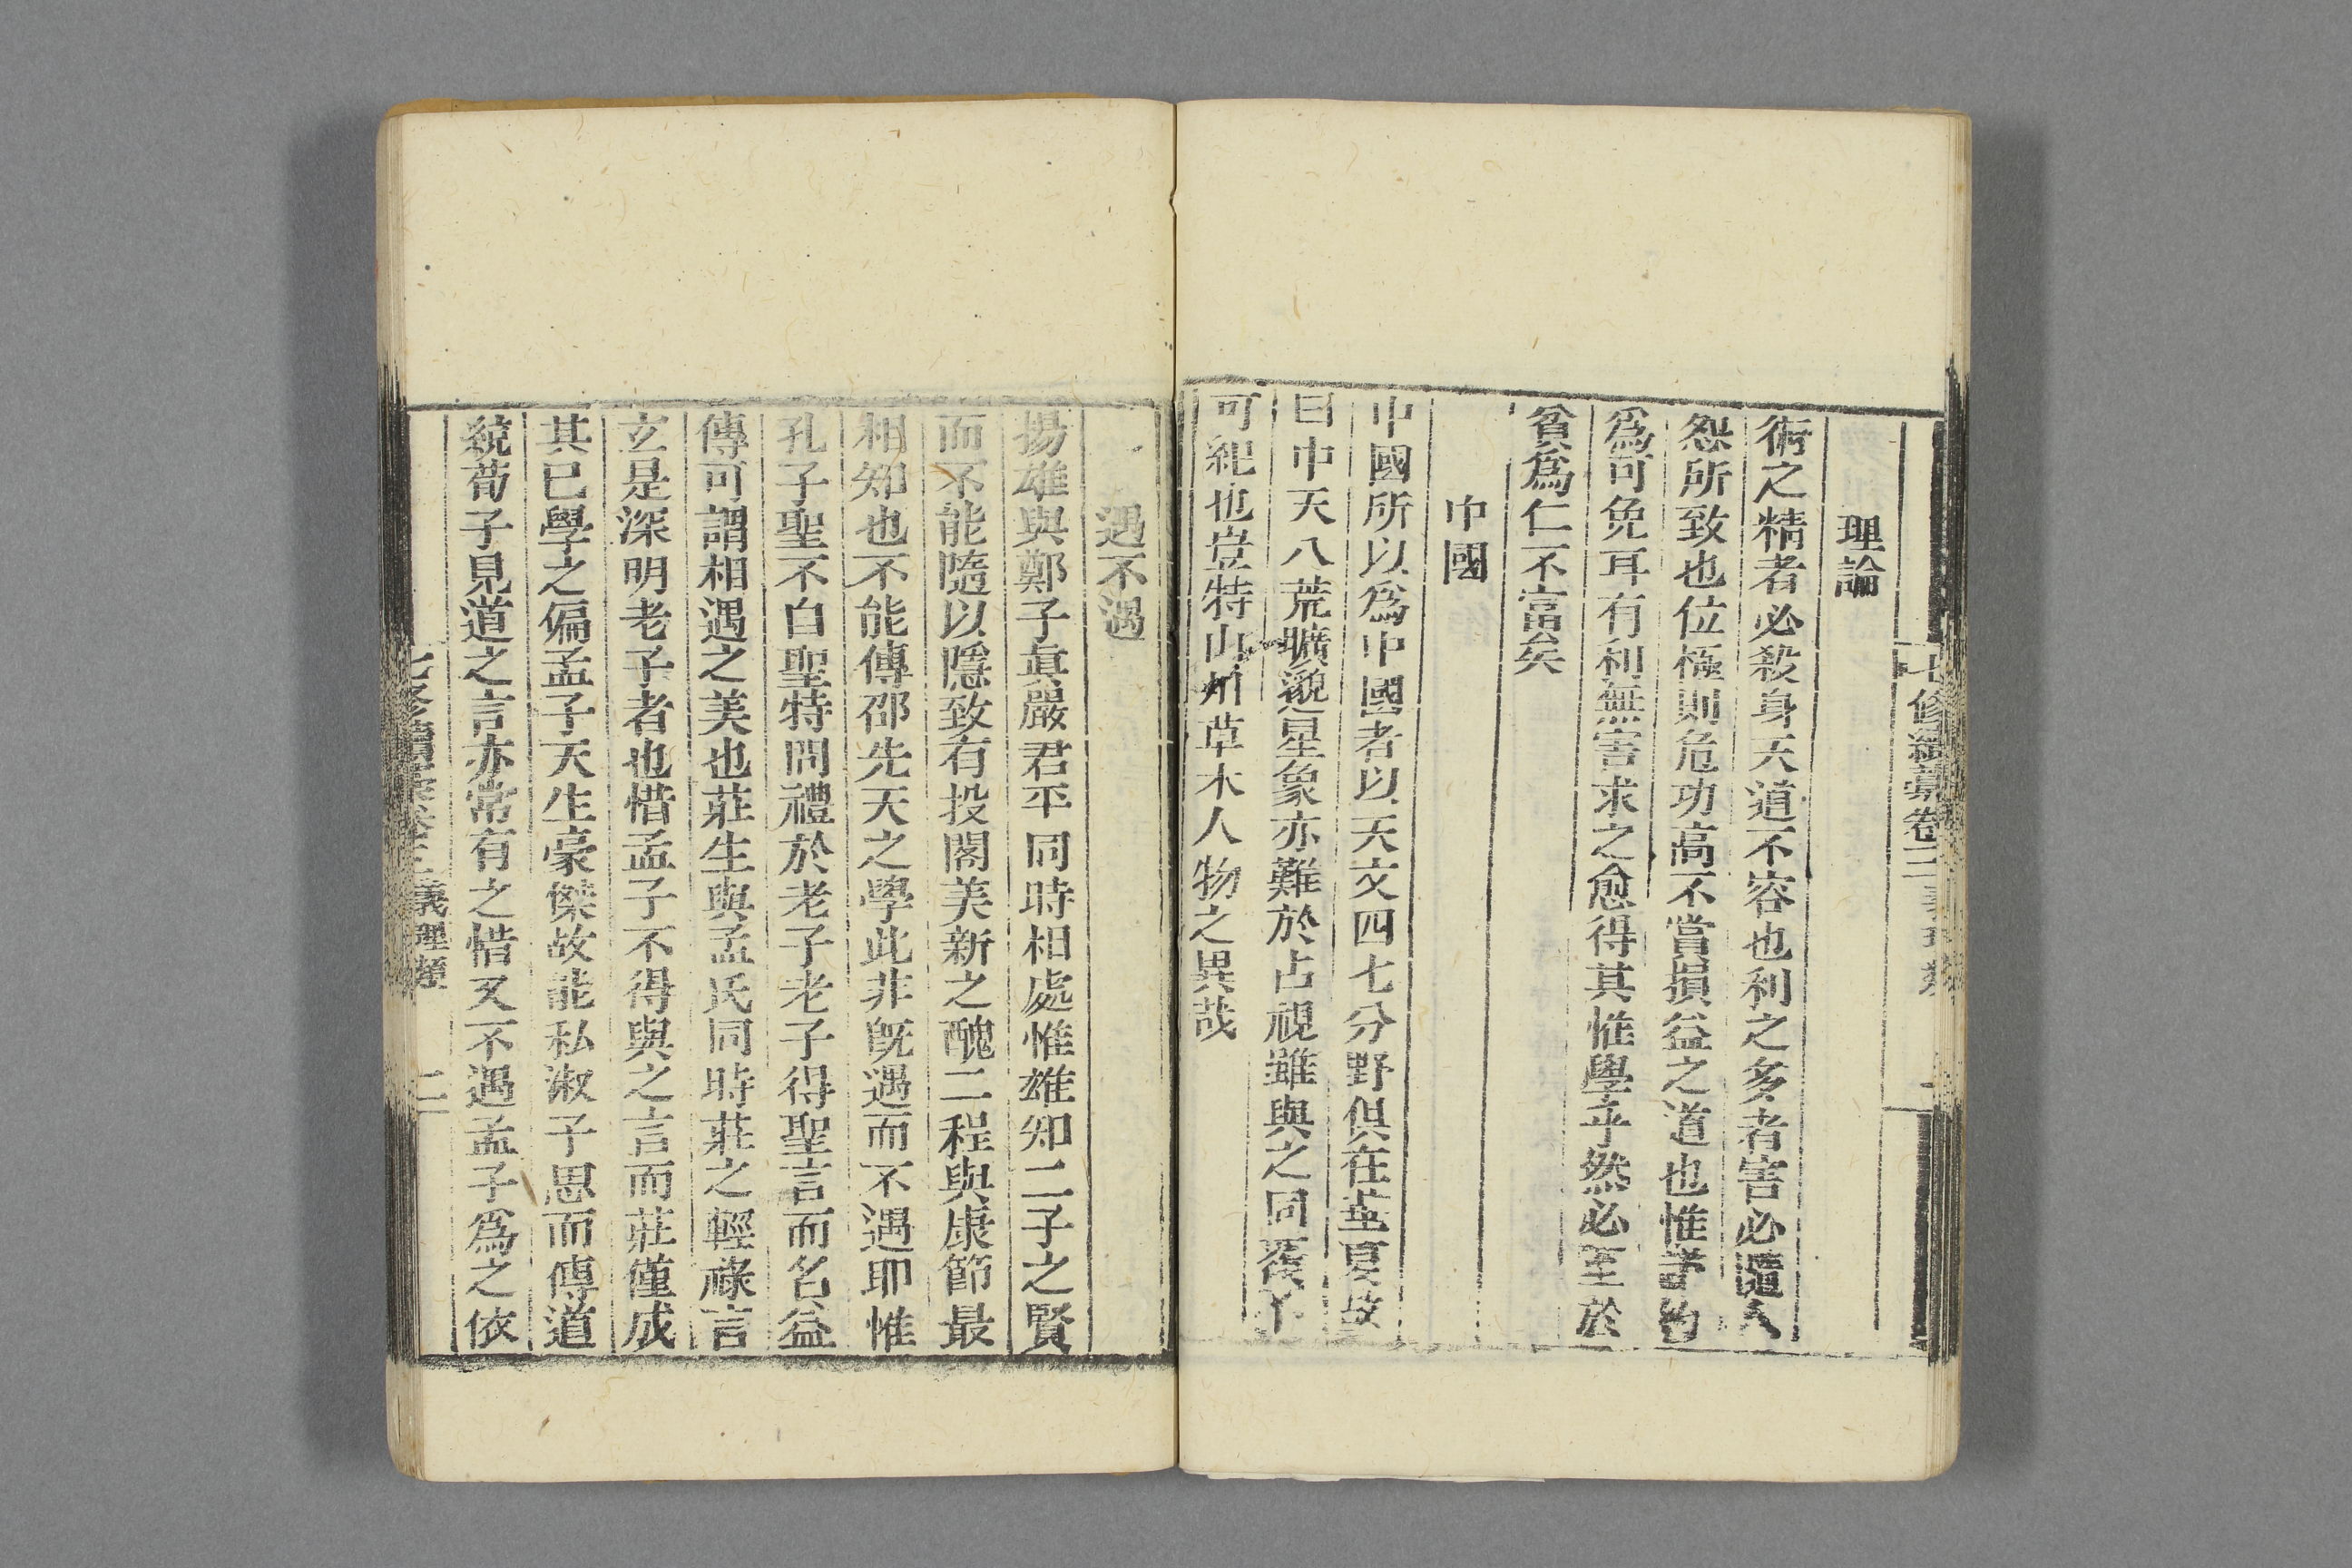 七修續藁卷三
理論
術之精者必殺身天道不容也利之多者害必隨人
怨所致也位極則危功高不賞損益之道也惟
爲可免耳有利無害求之愈得其惟學乎然必至於
貧爲仁不富矣
中國
中國所以爲中國者以天文四七分野俱在華夏故
曰中天八荒曠邈星象亦難於占視雖與之同
可紀也豈特山川草木人物之異哉
遇不遇
揚雄與鄭子眞嚴君平同時相處惟雄知二子之賢
而不能隨以隱致有投閣美新之醜二程與康節最
相知也不能傳邵先天之學此非旣遇而不遇耶惟
孔子聖不自聖特問禮於老子老子得聖言而名益
傳可謂相遇之美也莊生與孟氏同時莊之輕祿言
玄是深明老子者也惜孟子不得與之言而莊僅成
其已學之偏孟子天生豪傑故能私淑子思而傳道
統荀子見道之言亦常有之惜又不遇孟子爲之依
七修續藁卷三 義理類 二